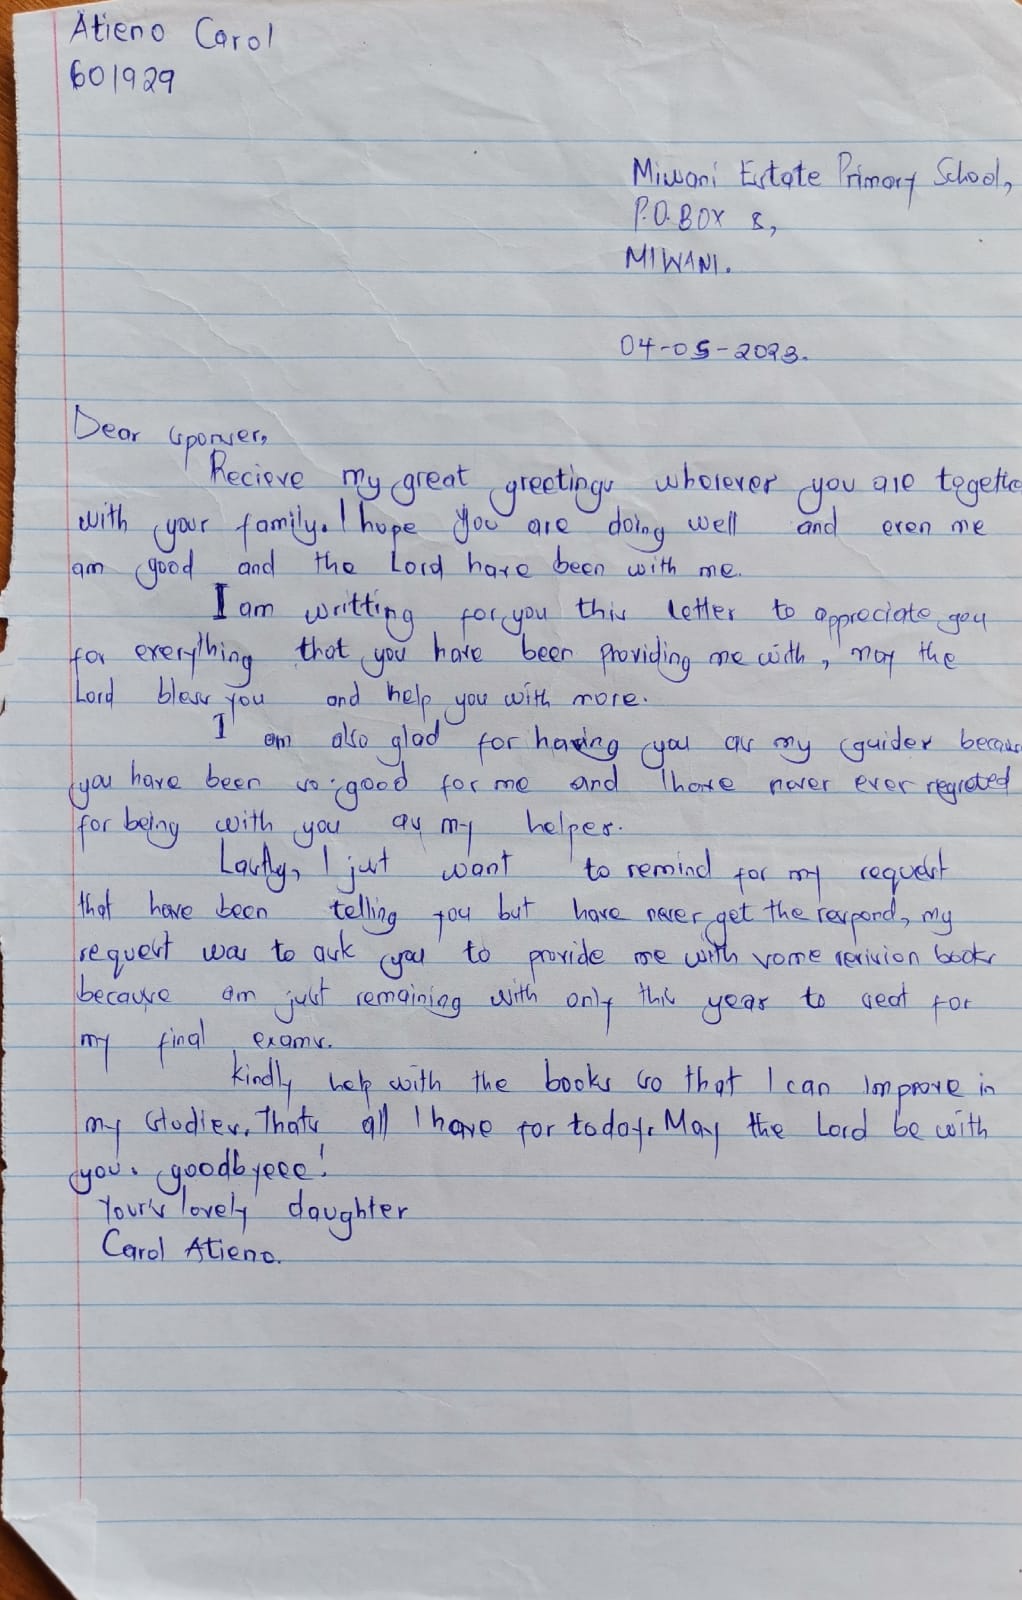 Atieno Carol
601929
Miwani Estate Primary School,
P.O. BOX 8,
MIWANI.
04-05-2023.
Dear sponser,
Recieve my great greetings wherever you are togethe
with your family. I hope you are doing well and even me
am good and the Lord have been with me.
I am writting for you this letter to appreciate you
for everything that you have been providing me with, may the
Lord bless you and help you with more.
I am also glad for having you as my guider because
you have been so good for me and I have never ever regreted
for being with you as my helper.
Lastly, I just want to remind for my request
that have been telling you but have never get the respond, my
request was to ask you to provide me with some revision books
because am just remaining with only this year to seat for
my final exams.
kindly help with the books so that I can improve in
my studies. Thats all I have for today. May the Lord be with
you. goodbyeee!
Your's lovely daughter
Carol Atieno.